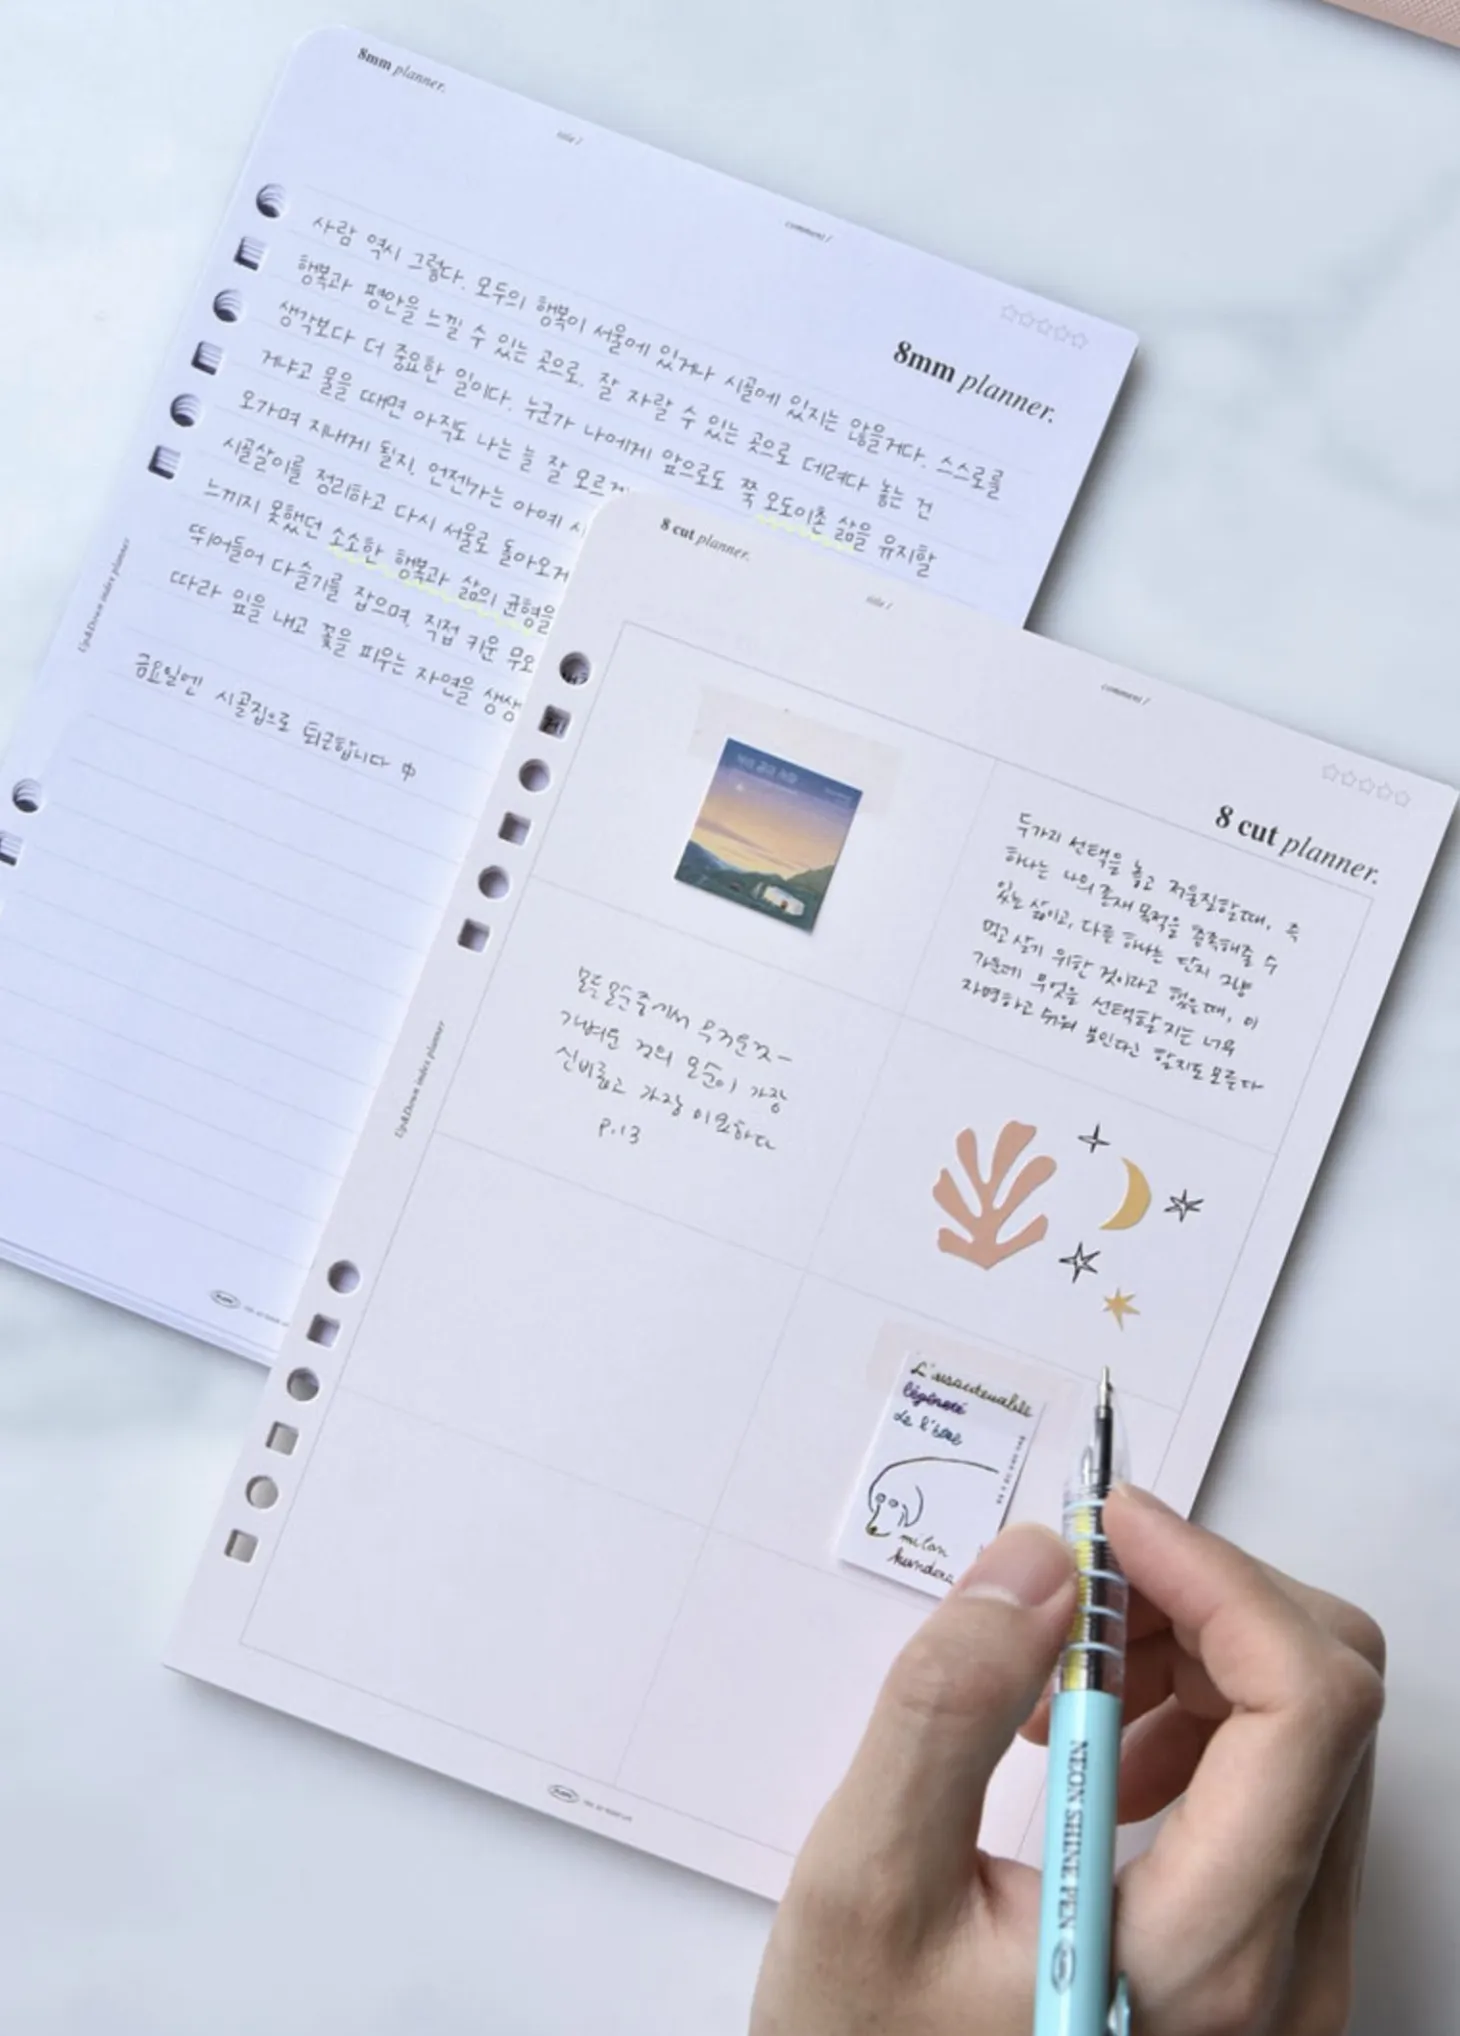 8mm planner.
title /
comment /
8mm planner.
사람 역시 그렇다. 모두의 행복이 서울에 있거나 시골에 있지는 않을거다. 스스로를
행복과 평안을 느낄 수 있는 곳으로, 잘 자랄 수 있는 곳으로 데려다 놓는 건
생각보다 더 중요한 일이다. 누군가 나에게 앞으로도 쭉 오도이촌 삶을 유지할
거냐고 물을 때면 아직도 나는 늘 잘 모르겠
오가며 지내게 될지, 언젠가는 아예 시
시골살이를 정리하고 다시 서울로 돌아오거
느끼지 못했던 소소한 행복과 삶의 균형을
뛰어들어 다슬기를 잡으며, 직접 키운 무오
따라 잎을 내고 꽃을 피우는 자연을 생생
금요일엔 시골집으로 퇴근합니다 中
Up&Down index planner
8 cut planner.
title /
comment /
8 cut planner.
두가지 선택을 놓고 저울질할때, 즉
하나는 나의 존재 목적을 충족해줄 수
있는 삶이고, 다른 하나는 단지 그냥
먹고 살기 위한 것이라고 했을때, 이
가운데 무엇을 선택할지는 너무
자명하고 쉬워 보인다고 할지도 모른다
모든 모순 중에서 무거운것-
가벼운 것의 모순이 가장
신비롭고 가장 미묘하다
P.13
Up&Down index planner
L'insoutenable
légèreté
de l'être
milan
kundera
NEON SHINE PEN